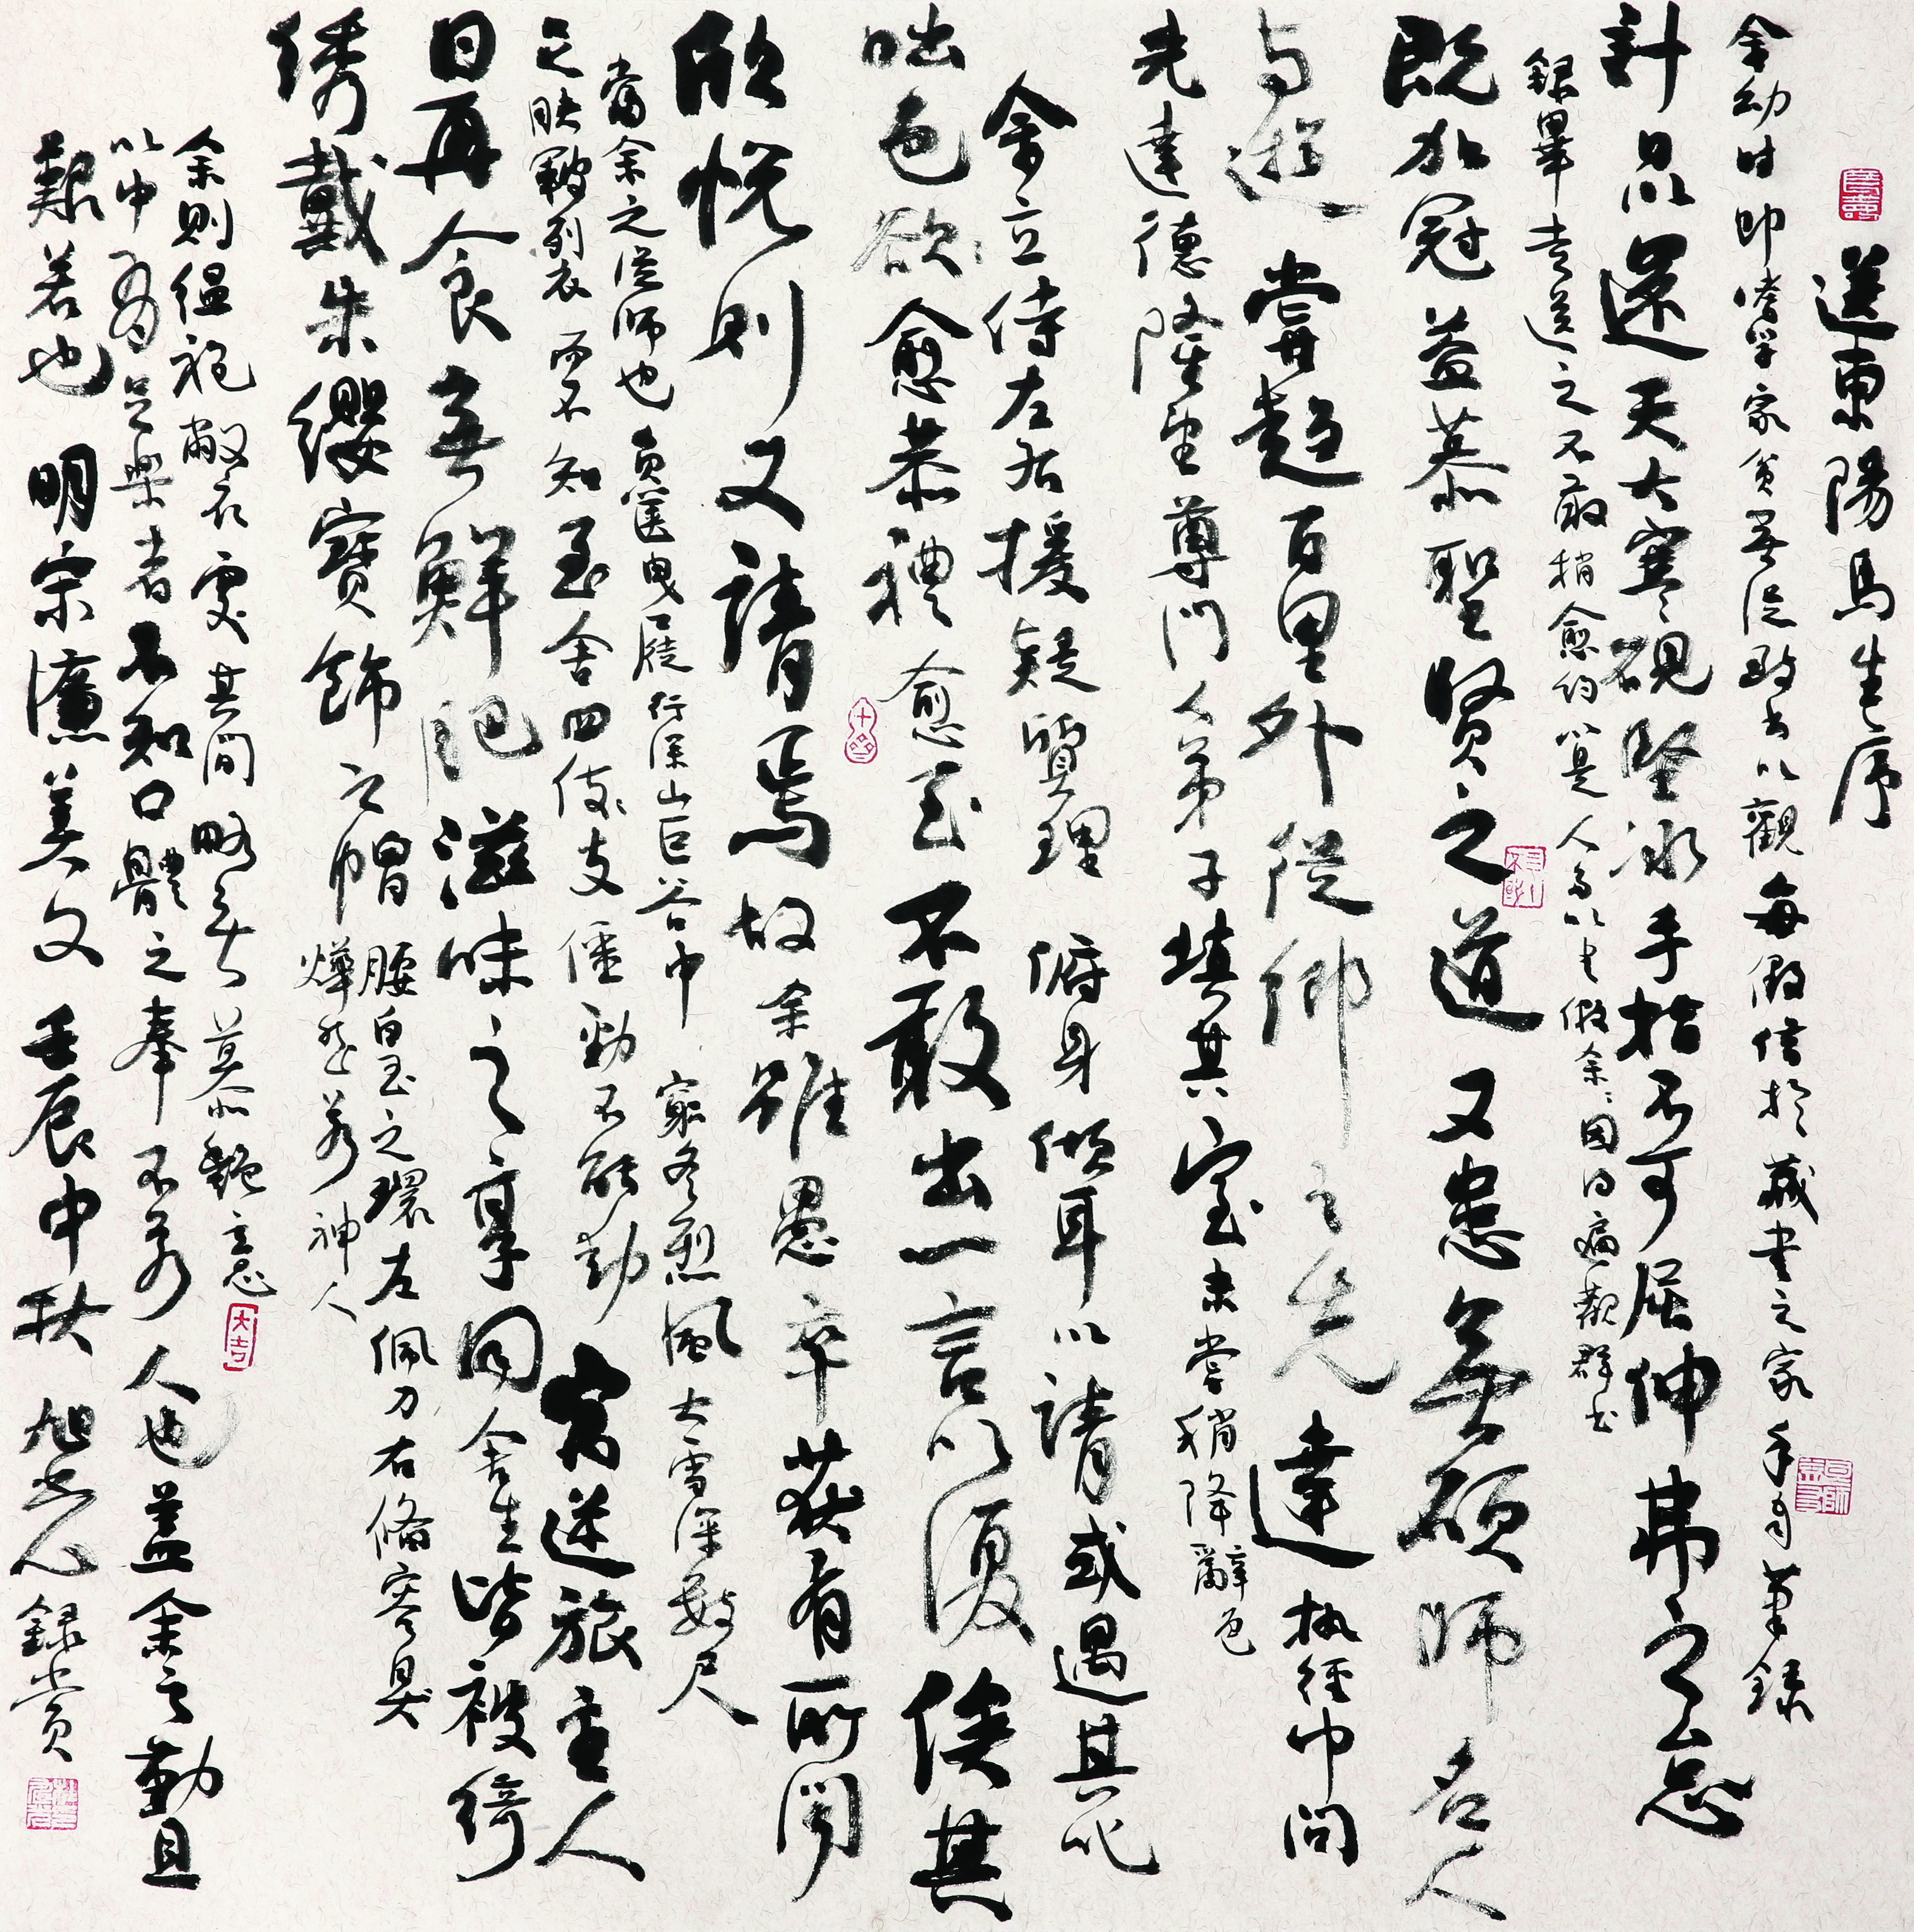 送東陽馬生序
余幼时即嗜学家貧無從致书以觀每假借於藏書之家手自筆録
計日以還天大寒硯堅冰手指不可屈伸弗之怠
録畢走送之不敢稍愈約以是人多以书假余余因得遍觀群书
既加冠益慕聖賢之道又患無碩師名人
与遊嘗趨百里外從鄉之先達執經叩問
先達德隆望尊門人弟子填其室未嘗稍降辭色
余立侍左右援疑質理俯身傾耳以請或遇其叱
咄色欲愈恭禮愈至不敢出一言以復俟其
欣悦則又請焉故余雖愚卒获有所聞
當余之從师也負篋曳屣行深山巨谷中窮冬烈風大雪深數尺
之肤皲裂而不知至舍四支僵勁不能動寓逆旅主人
日再食無鮮肥滋味之享同舍生皆被綺
绣戴朱纓寶飾之帽腰白玉之環左佩刀右備容臭
燁然若神人
余則缊袍敝衣處其間略無慕艶意
大吉
以中有足樂者不知口體之奉不若人也蓋余之勤且
艱若也 明宋濂美文 壬辰中秋 旭 録赏